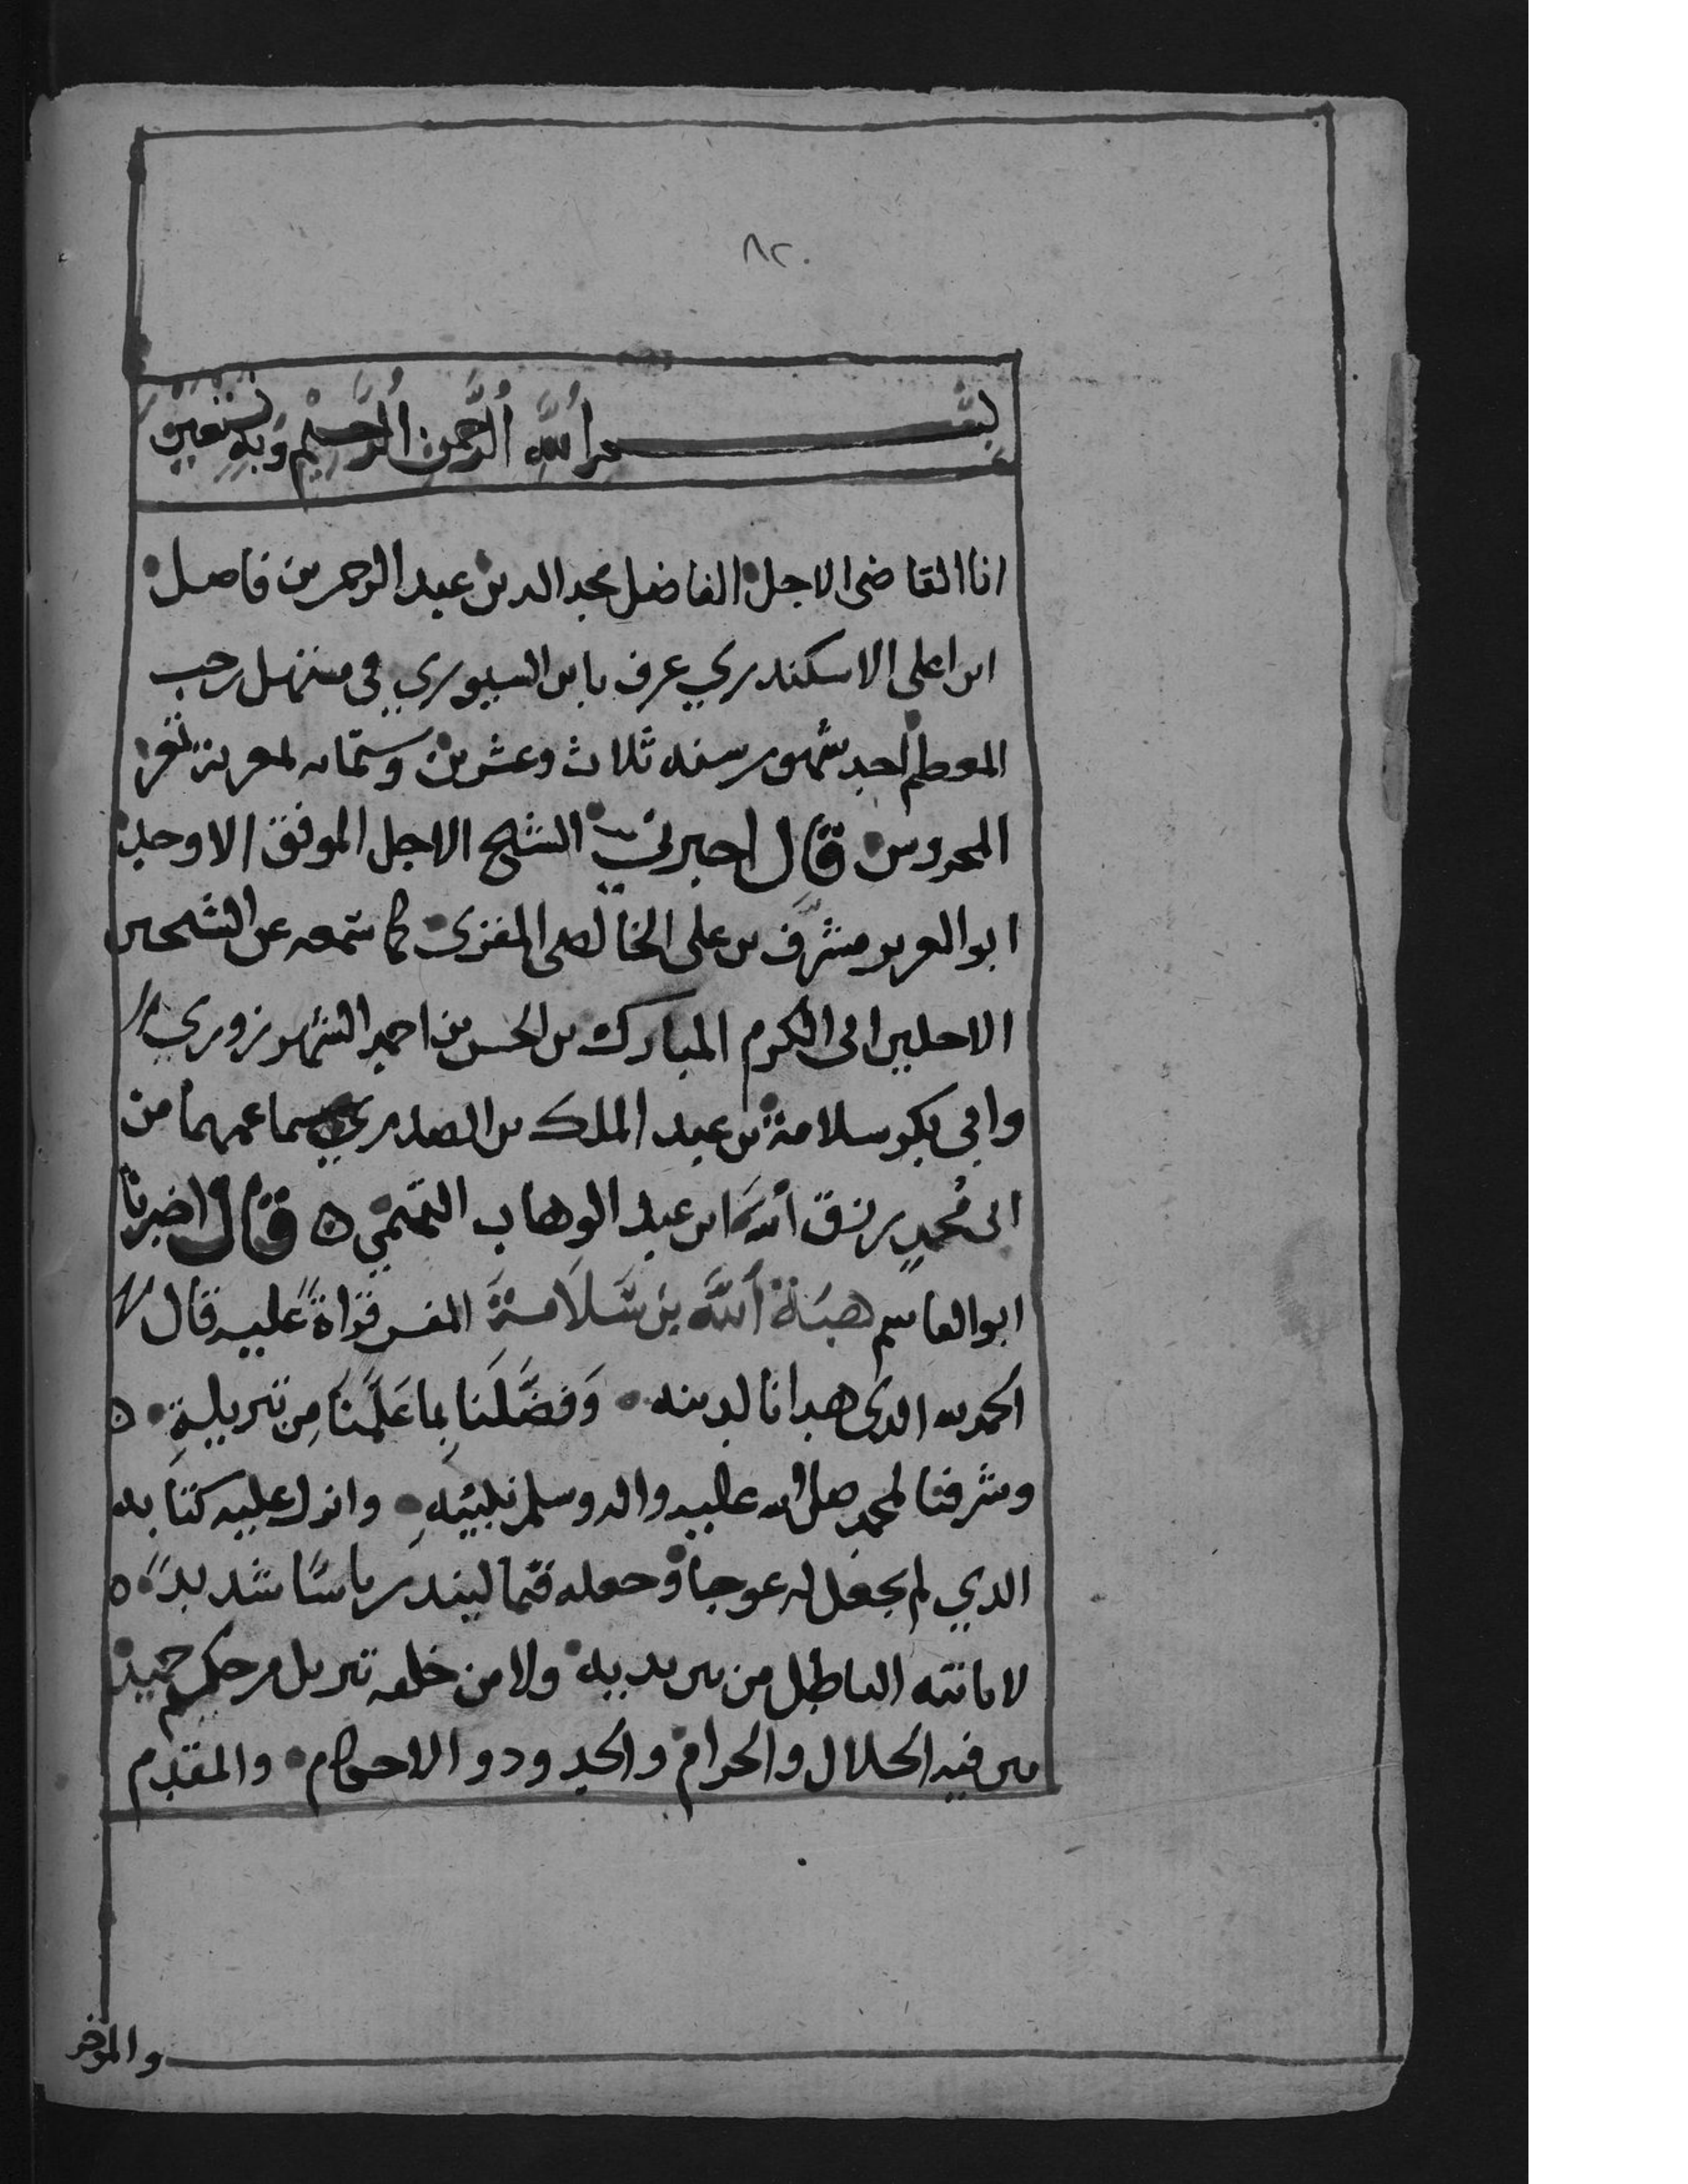 ٨٢
بسم الله الرحمن الرحيم وبه نستعين
انا القاضى الاجل الفاضل مجد الدين عبد الرحمن فاصل
ابن اعلى الاسكندري عرف بابن السيوري في مستهل رجب
المعطم احد شهور سنه ثلاث وعشرين وستمايه لمعرىز ثغر
المحروس قال احبرني الشيح الاجل الموفق الاوحد
ابو العز بو مشرف بن على الخالصى المقرى كما سمعه عن الشيحين
الاجلين ابى الكرم المبارك بن الحسن بن احمد الشهرزوري
وابي بكر سلامة بن عبد الملك بن الصدري سماعهما من
ابى محمد رزق الله ابن عبد الوهاب التميمي ٥ قال اخبرنا
ابو القاسم هبة الله بن سلامة المفسر قراةً عليه قال
الحمد لله الذى هدانا لدينه وَفضَّلنَا بما عَلَّمَنَا مِن تنزيلهِ ٥
وشرفنا لمحمد صلى الله عليه واله وسلم نبيئهِ وانزل عليه كتابه
الذي لم يجعل له عوجا وجعله قيما لينذر باسًا شديدًا ٥
لا ياتيه الباطل من بين يديه ولا من خلفه تنزيل من حكيم حميد
بين فيه الحلال والحرام والحدود والاحكام والمقدم
والموخر